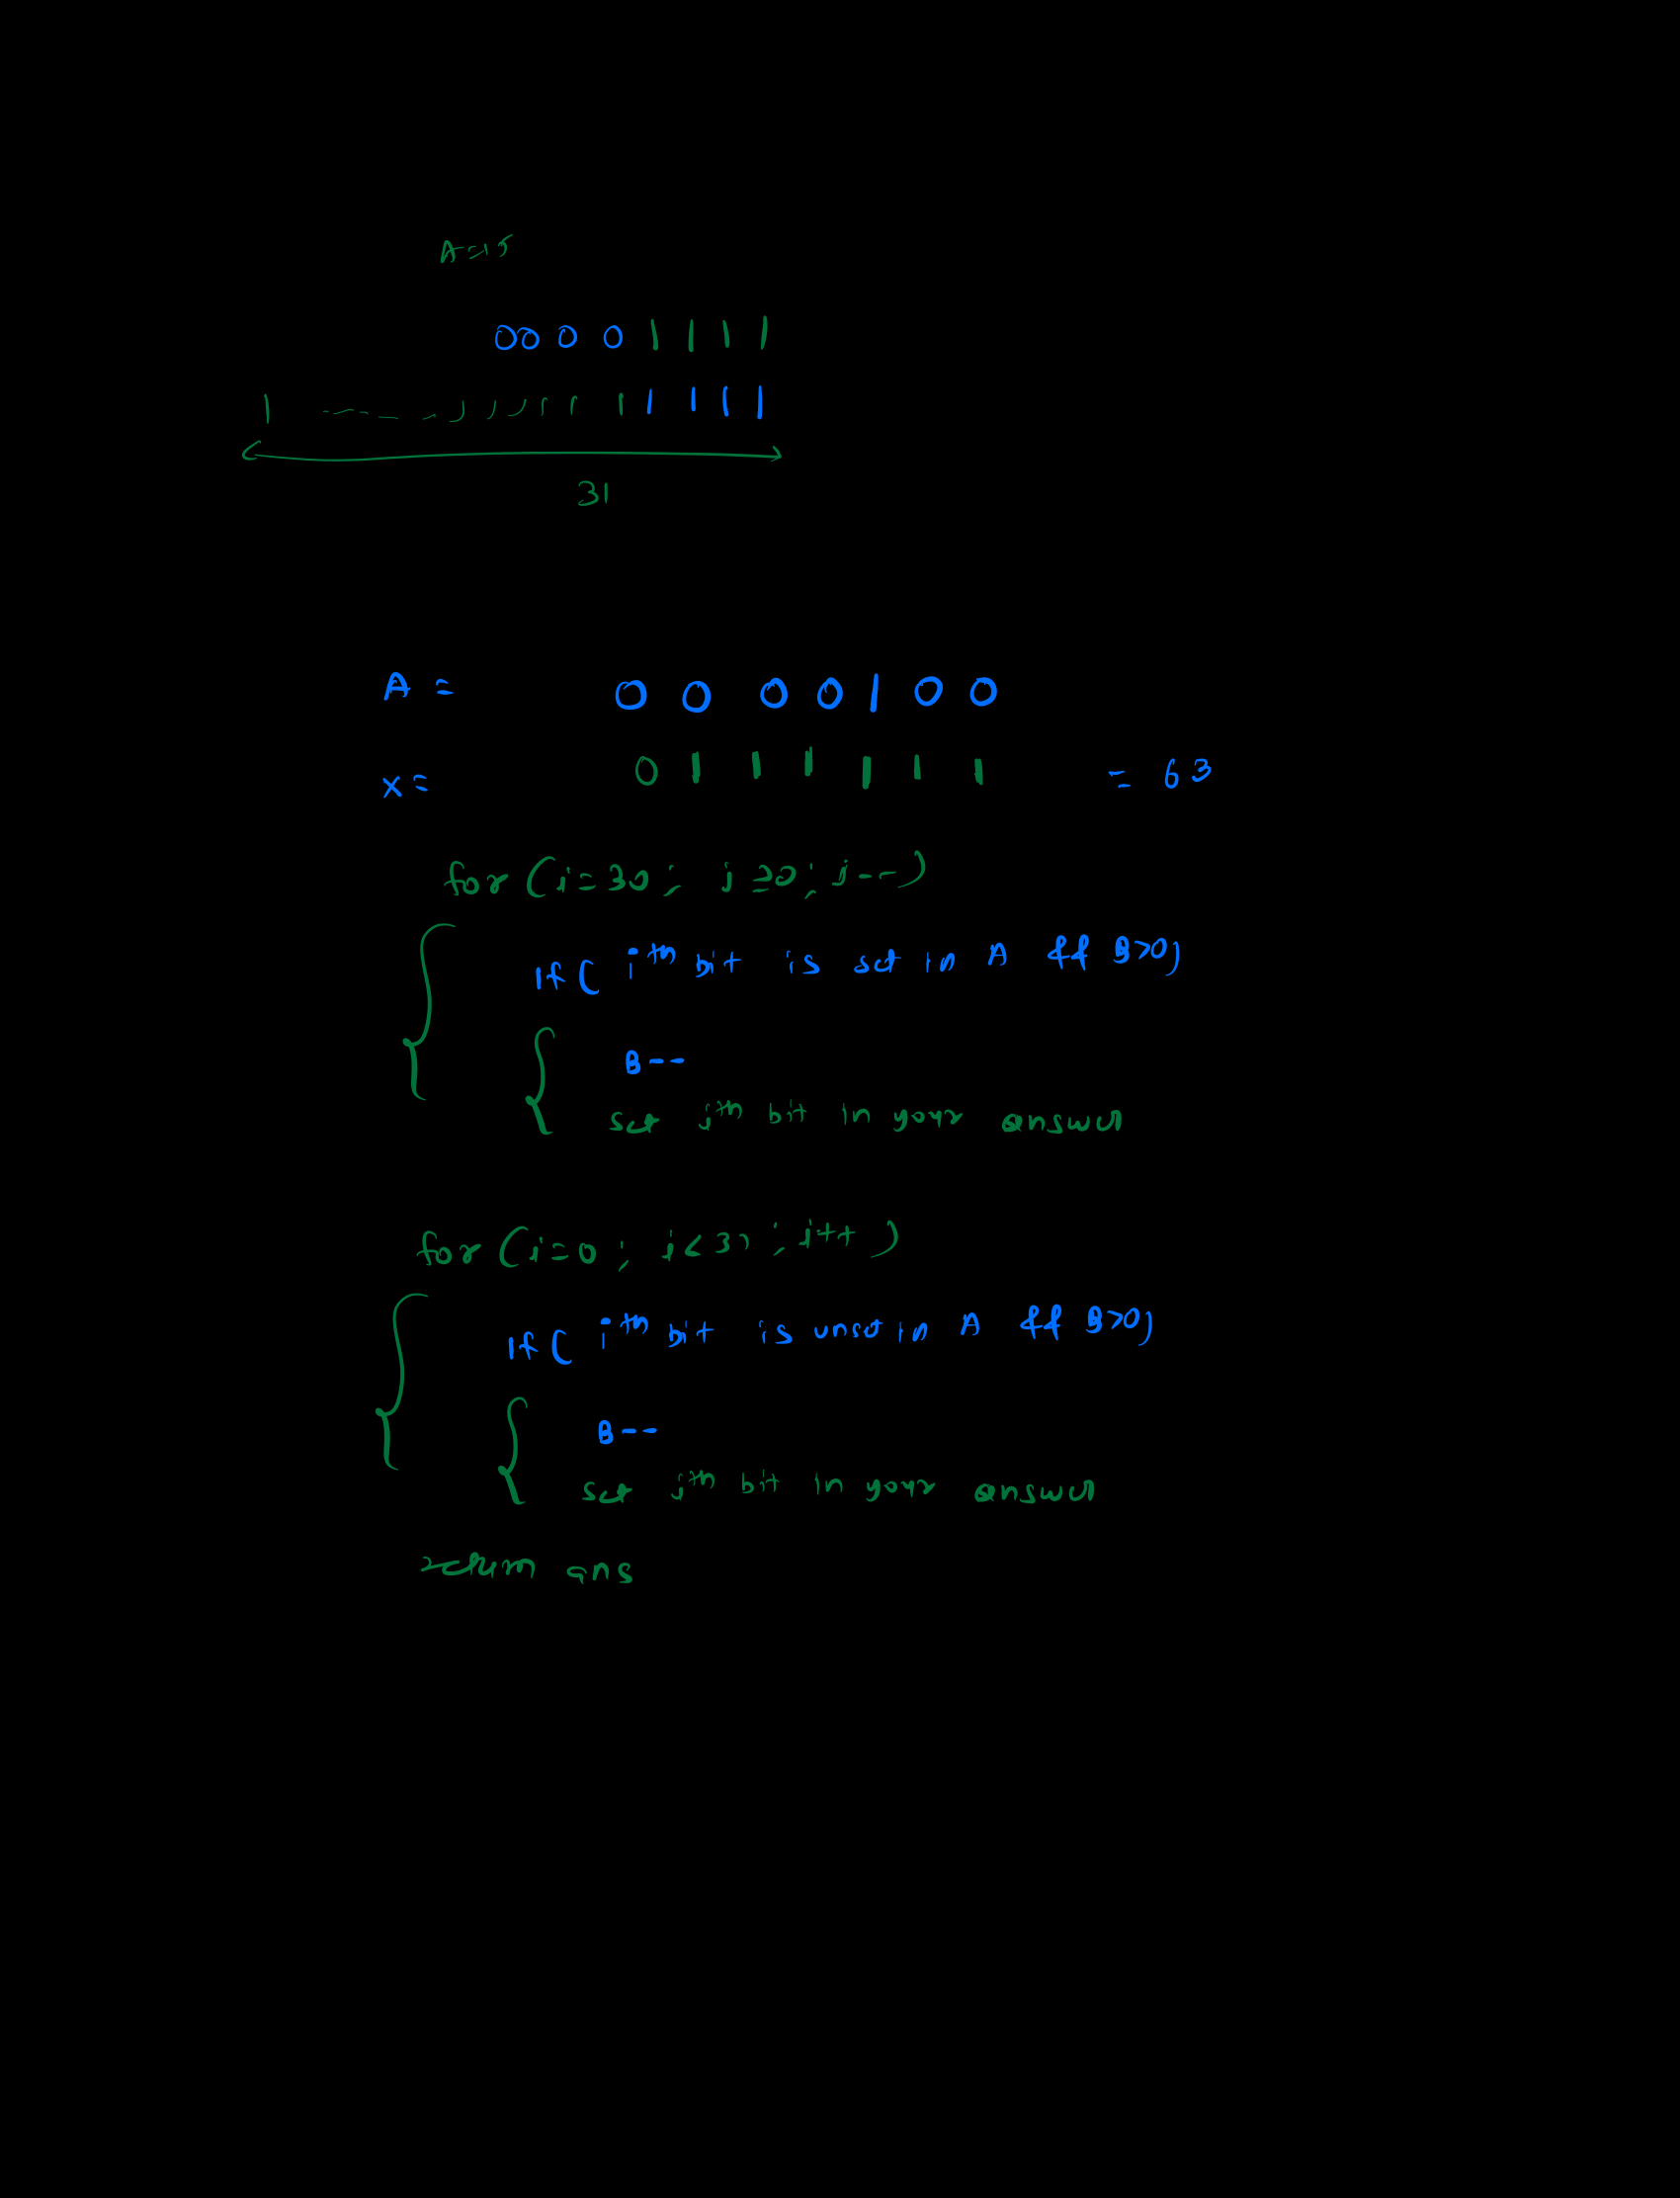 A=15
0000 1111
1 1 1 1 1 1
31
A = 0 0 0 0 1 0 0
x = 0 1 1 1 1 1 1 = 63
for (i=30; i≥0; i--)
{ if ( ith bit is set in A && B>0)
{ B--
set ith bit in your answer
for (i=0; i<31; i++)
{ if ( ith bit is unset in A && B>0)
{ B--
set ith bit in your answer
return ans